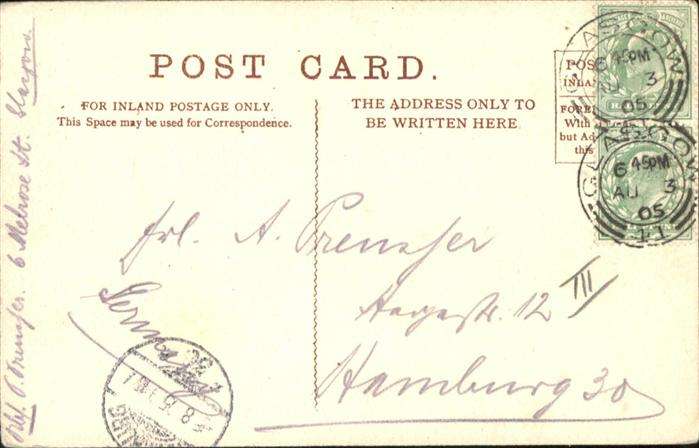 POST CARD.
FOR INLAND POSTAGE ONLY.
This Space may be used for Correspondence.
THE ADDRESS ONLY TO
BE WRITTEN HERE
POS
INLAN
FOREI
With
but Ad
this
GLASGOW
6 45PM
AU 3
05
GLASGOW
6 45PM
AU 3
05
Frl. A. Preusser
12 III
Hamburg 30
Germany
6 Melrose St. Glasgow.